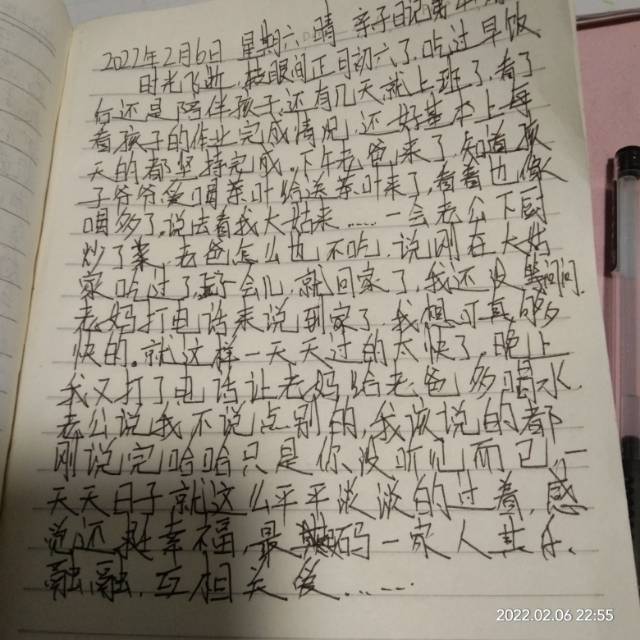 2022年2月6日 星期六 晴 亲子日记第
时光飞逝,转眼间正月初六了,吃过早饭
后还是陪伴孩子,还有几天就上班了,看了
看孩子的作业完成情况,还好基本上每
天的都坚持完成。下午老爸来了,知道孩
子爷爷爱喝茶叶给送茶叶来了,看着也像
喝多了。说去看我大姑来……一会老公下厨
炒了菜,老爸怎么也不吃,说刚在大姑
家吃过了,玩了会儿,就回家了,我还没等问问,
老妈打电话来说到家了,我想可真够
快的。就这样一天天过的太快了,晚上
我又打了电话让老妈给老爸多喝水,
老公说我不说点别的,我说说的都
刚说完哈哈只是你没听见而已,一
天天日子就这么平平淡淡的过着,感
觉还挺幸福,最起码一家人其乐
融融,互相关爱……
2022.02.06 22:55